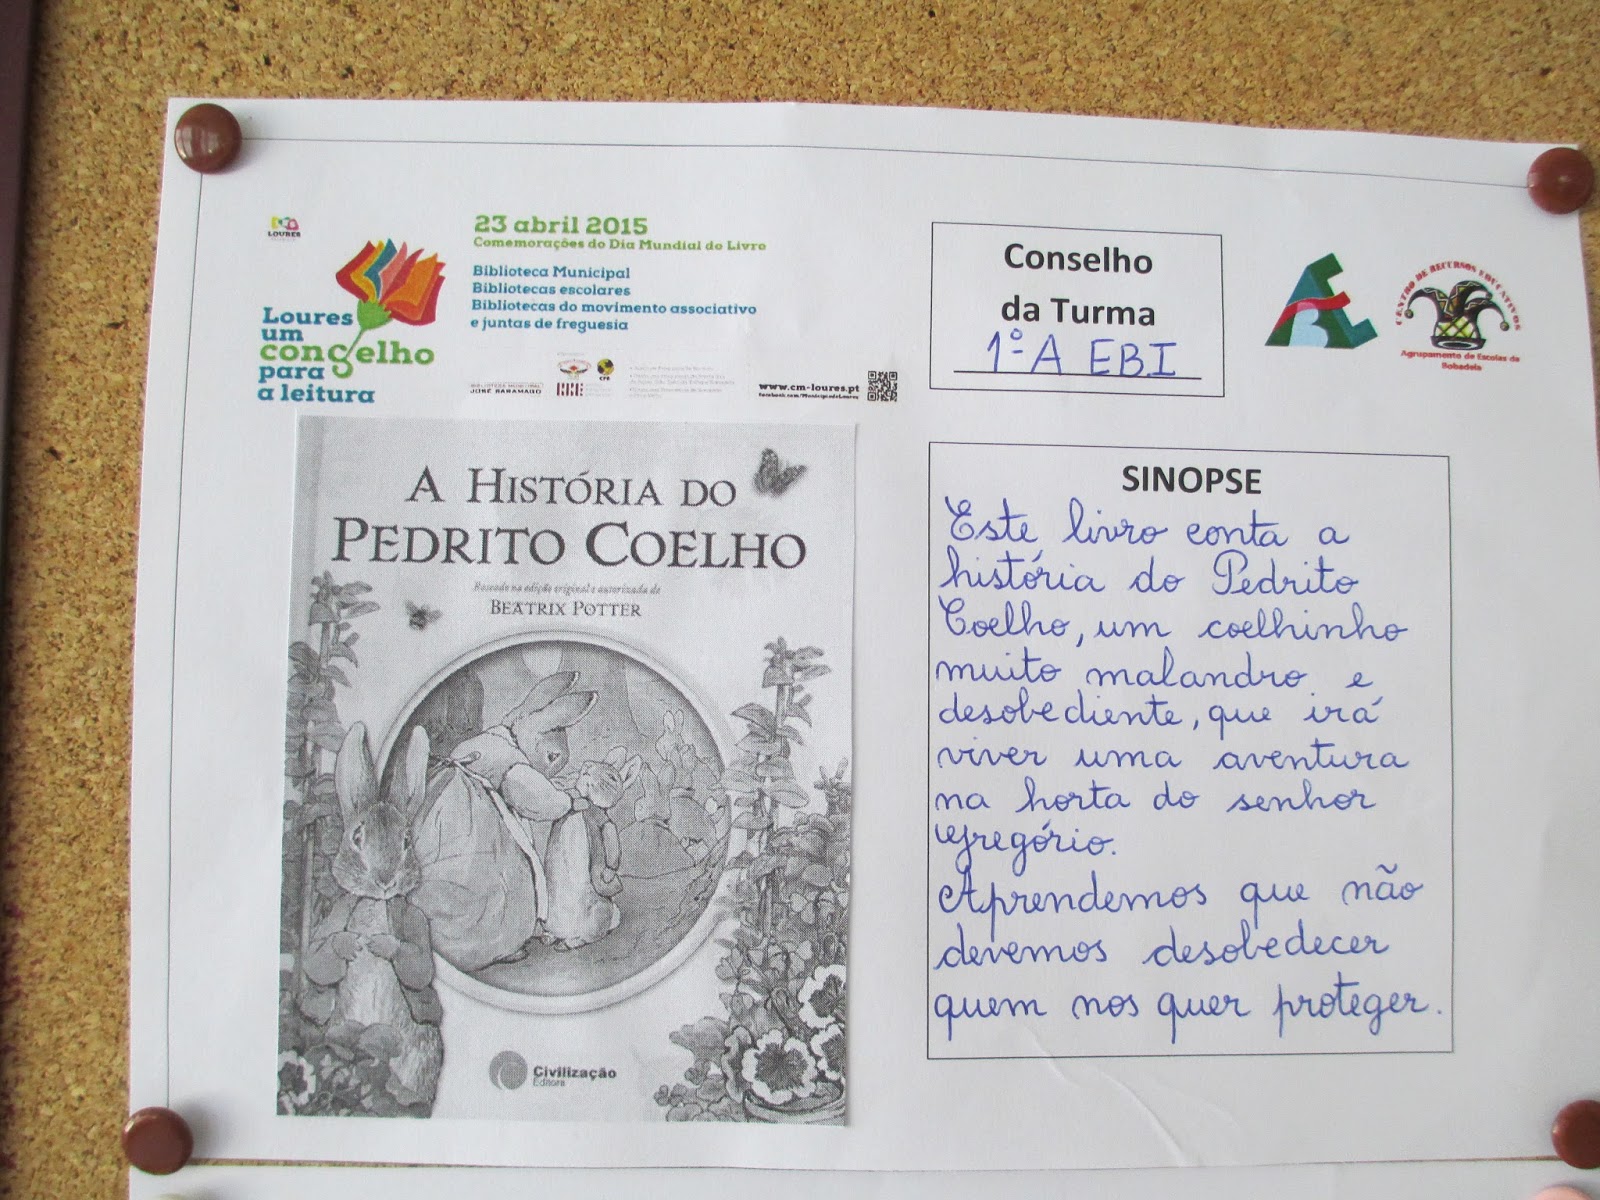 LOURES
Loures
um
conselho
para
a leitura
23 abril 2015
Comemorações do Dia Mundial do Livro
Biblioteca Municipal
Bibliotecas escolares
Bibliotecas do movimento associativo
e juntas de freguesia
BIBLIOTECA MUNICIPAL
JOSÉ SARAMAGO
www.cm-loures.pt
facebook.com/MunicipiodeLoures
Conselho
da Turma
1º A EBI
CENTRO DE RECURSOS EDUCATIVOS
Agrupamento de Escolas da
Bobadela
A HISTÓRIA DO
PEDRITO COELHO
Baseado na edição original e autorizada de
BEATRIX POTTER
Civilização
Editora
SINOPSE
Este livro conta a
história do Pedrito
Coelho, um coelhinho
muito malandro e
desobediente, que irá
viver uma aventura
na horta do senhor
Gregório.
Aprendemos que não
devemos desobedecer
quem nos quer proteger.